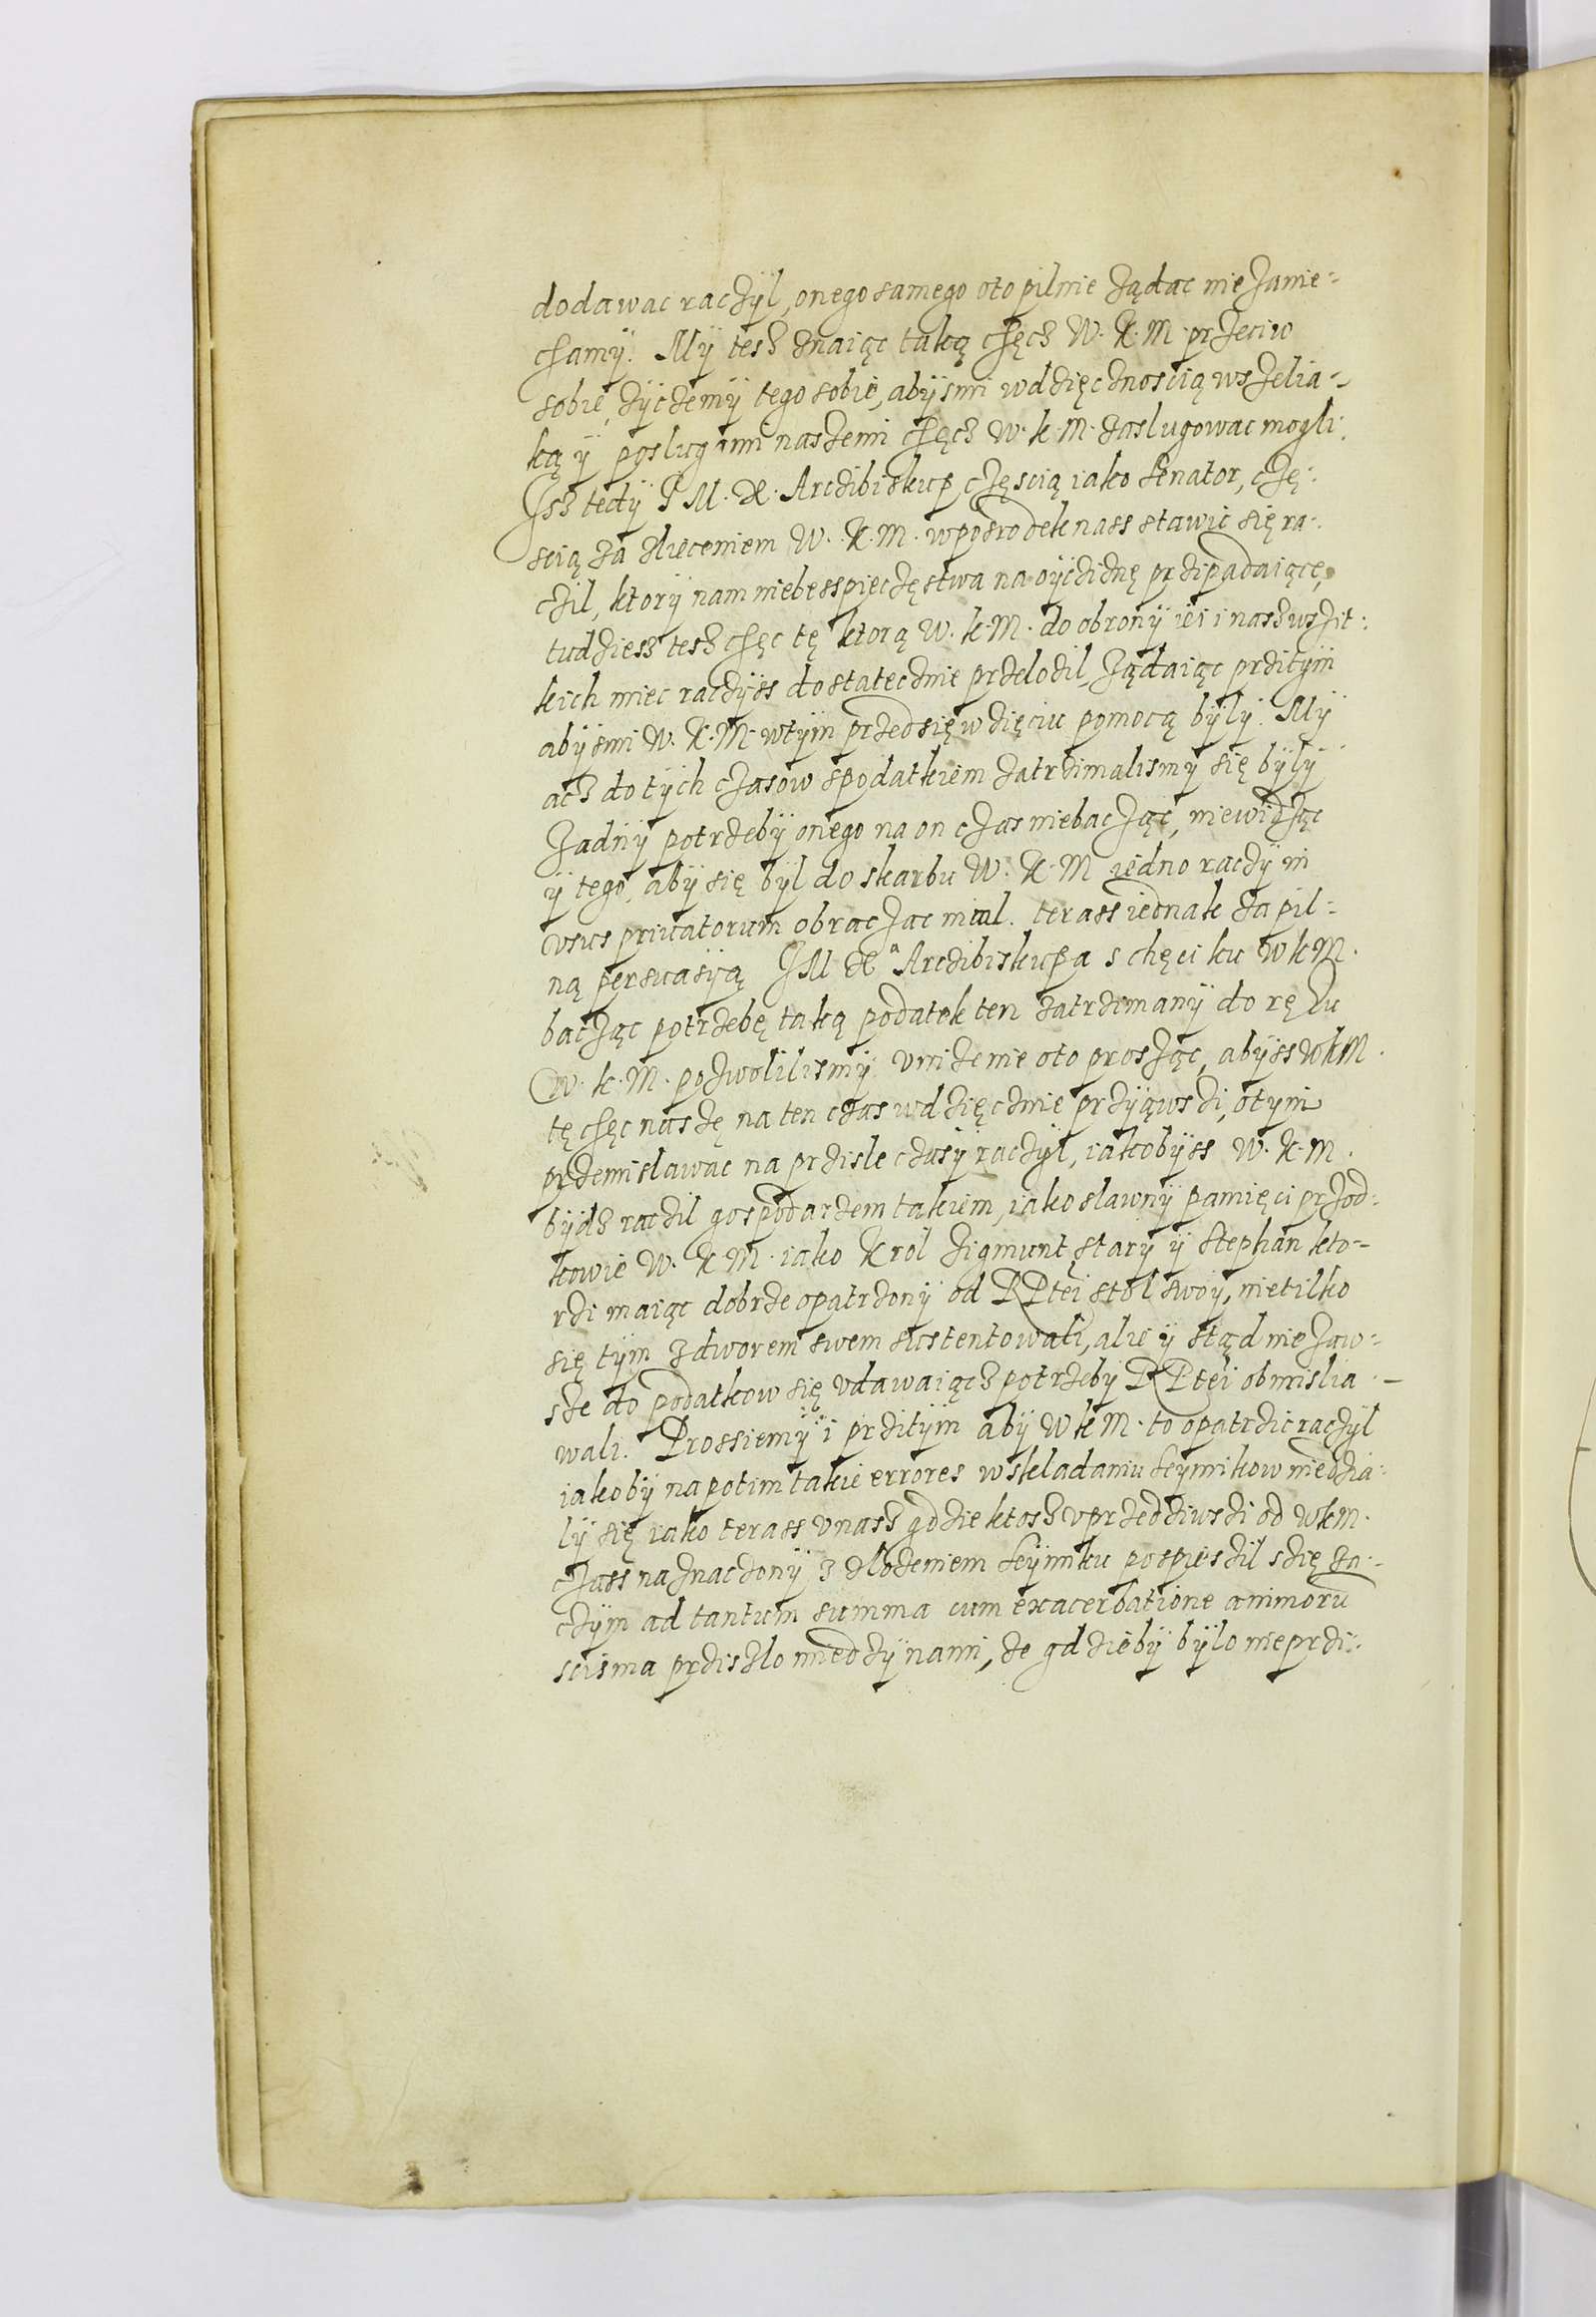 dodawac raczÿl, onego samego oto pilnie ządac nie zanie=
chamÿ. Mÿ tesz znaiąc taką chęcz W. K. M. przeciw
sobie, zÿczemÿ tego sobie, abÿsmi wdzięcznoscią wszelia=
ką ÿ poslugami naszemi chęcz W. K. M. zaslugowac mogli.
Jsz tedÿ J M. X. Arczibiskup częscią iako Senator, czę=
scią za zleceniem W. K. M. wposrodek nass stawic się ra=
czil, ktorÿ nam niebesspieczęstwa na oÿcziznę przipadaiące,
tudziesz tesz chęc tę ktorą W. K. M. do obronÿ iei i nasz wszit=
kich miec raczÿss dostatecznie przelozil, ządaiąc przitÿm
abÿsmi W. K. M. wtÿm przedsięwzięciu pomocą bÿlÿ. Mÿ
acz do tÿch czasow spodatkiem zatrzimalismÿ się bÿlÿ
zadnÿ potrzebÿ onego na on czas niebacząc, niewidząc
ÿ tego, abÿ się bÿl do skarbu W. K. M iedno raczÿ in
vsus priuatorum obraczac mial. terass iednak za pil=
ną persuasÿą J M X<sup>a</sup> Arczibiskupa s chęci ku W K M.
bacząc potrzebę taką podatek ten zatrzimanÿ do ręku
W. K. M. pozwolilismÿ vnizenie oto prosząc, abÿss W K M.
tę chęc naszę na ten czas wdzięcznie przÿiąwszi, otÿm
przemislawac na przisle czasÿ raczÿl, iakobÿss W. K. M.
bÿdz raczil gospodarzem takiem, iako slawnÿ pamięci przod=
kowie W. K M. iako Krol Zigmunt starÿ ÿ Stephan kto=
rzi maiąc dobrze opatrzonÿ od RPtei stol swoÿ, nietilko
się tÿm z dworem swem sustentowali, alie ÿ stąd nie zaw=
sze do podatkow się vdawaiącz potrzebÿ RPtei obmislia=
wali. Prossiemÿ i przitÿm abÿ W K M. to opatrzic raczÿl
iakobÿ napotim takie errores w skladaniu Seÿmikow niedzia=
lÿ się iako terass vnasz gdzie ktosz vprzedziwszi od W K M.
czass naznaczonÿ z zlozeniem Seÿmiku pospieszil się za=
czÿm ad tantum summa cum exacerbatione animorū
scisma przislo miedzÿ nami, ze gdziebÿ bÿlo nieprzi=